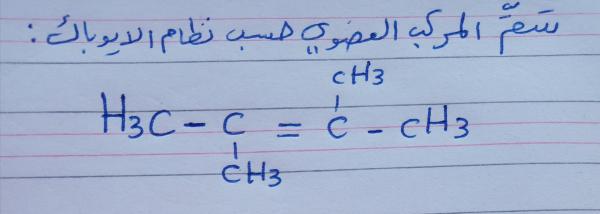 سَمِّ المركب العضوي حسب نظام الايوباك :
CH3
H3C - C = C - CH3
CH3